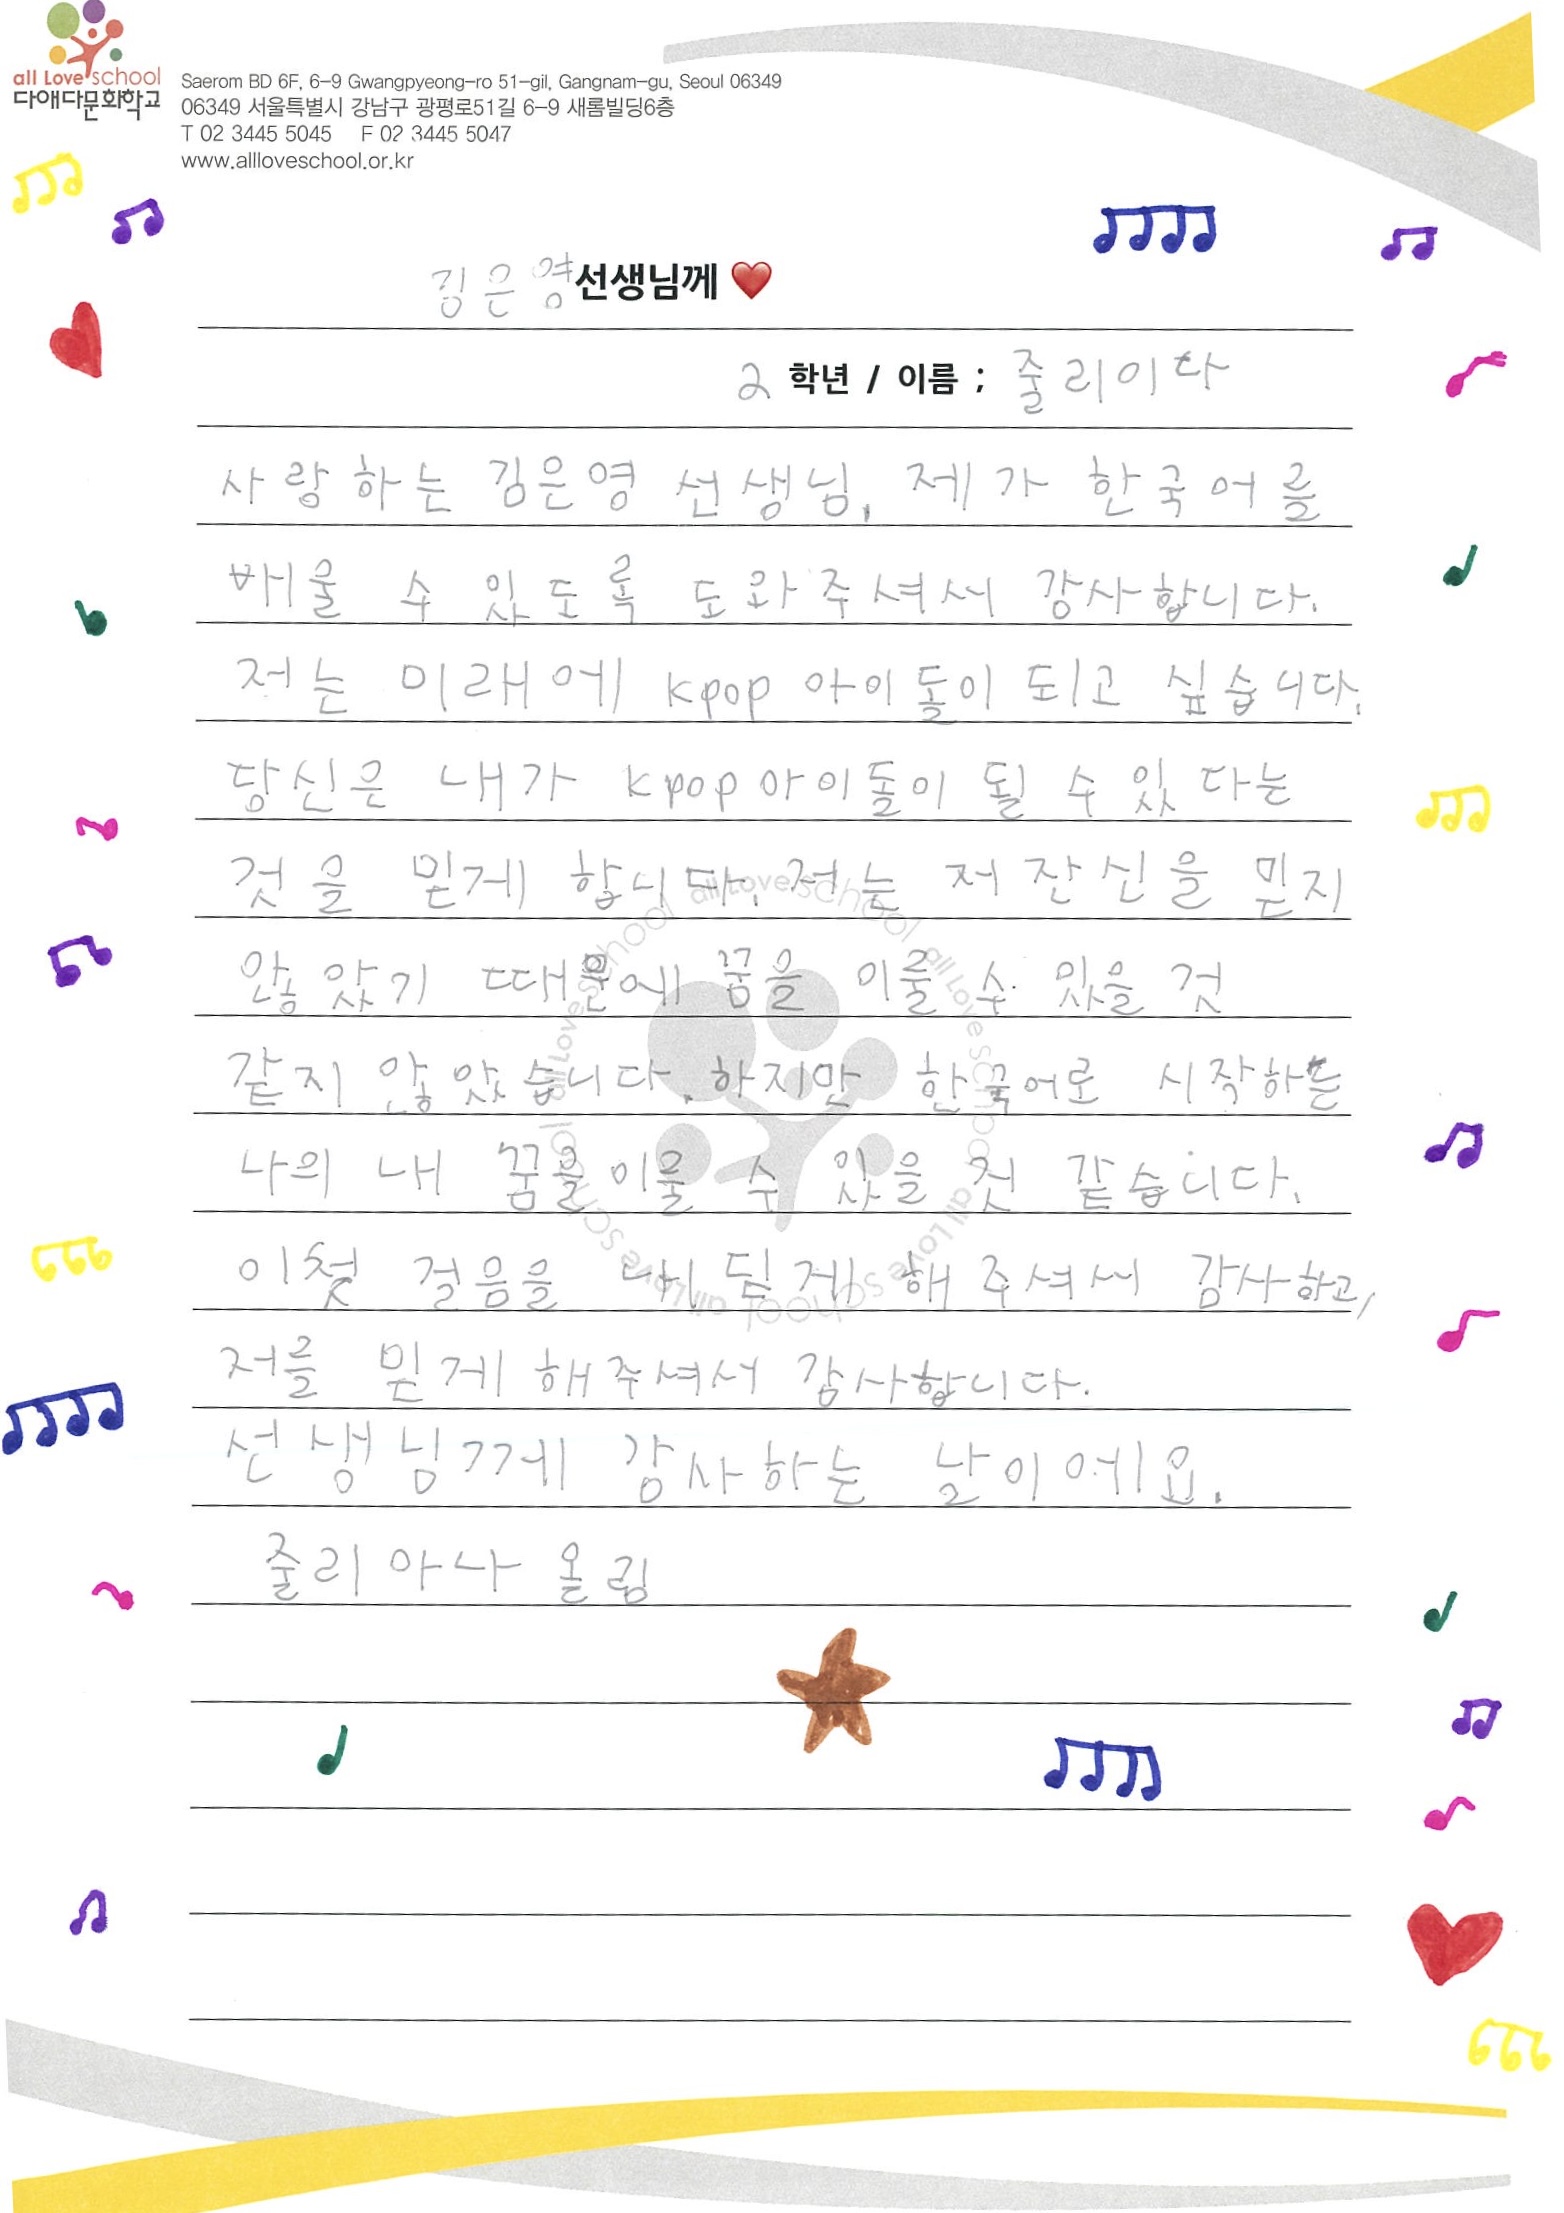 all Love school
다애다문화학교
Saerom BD 6F, 6-9 Gwangpyeong-ro 51-gil, Gangnam-gu, Seoul 06349
06349 서울특별시 강남구 광평로51길 6-9 새롬빌딩6층
T 02 3445 5045 F 02 3445 5047
www.allloveschool.or.kr
김은영선생님께 ❤
2 학년 / 이름 ; 줄리이다
사랑하는 김은영 선생님, 제가 한국어를
배울 수 있도록 도와주셔서 강사합니다.
저는 미래에 kpop 아이돌이 되고 싶습니다.
당신은 내가 kpop 아이돌이 될 수 있 다는
것을 믿게 합니다. 저는 저 잔신을 믿지
않았기 때문에 꿈을 이룰 수 있을 것
같지 않았습니다. 하지만 한국어로 시작하는
나의 내 꿈을 이룰 수 있을 첫 같습니다.
이첫 걸음을 내딛게 해주셔서 감사하고,
저를 믿게 해주셔서 감사합니다.
선생님께 감사하는 날이에요.
줄리아나 올림